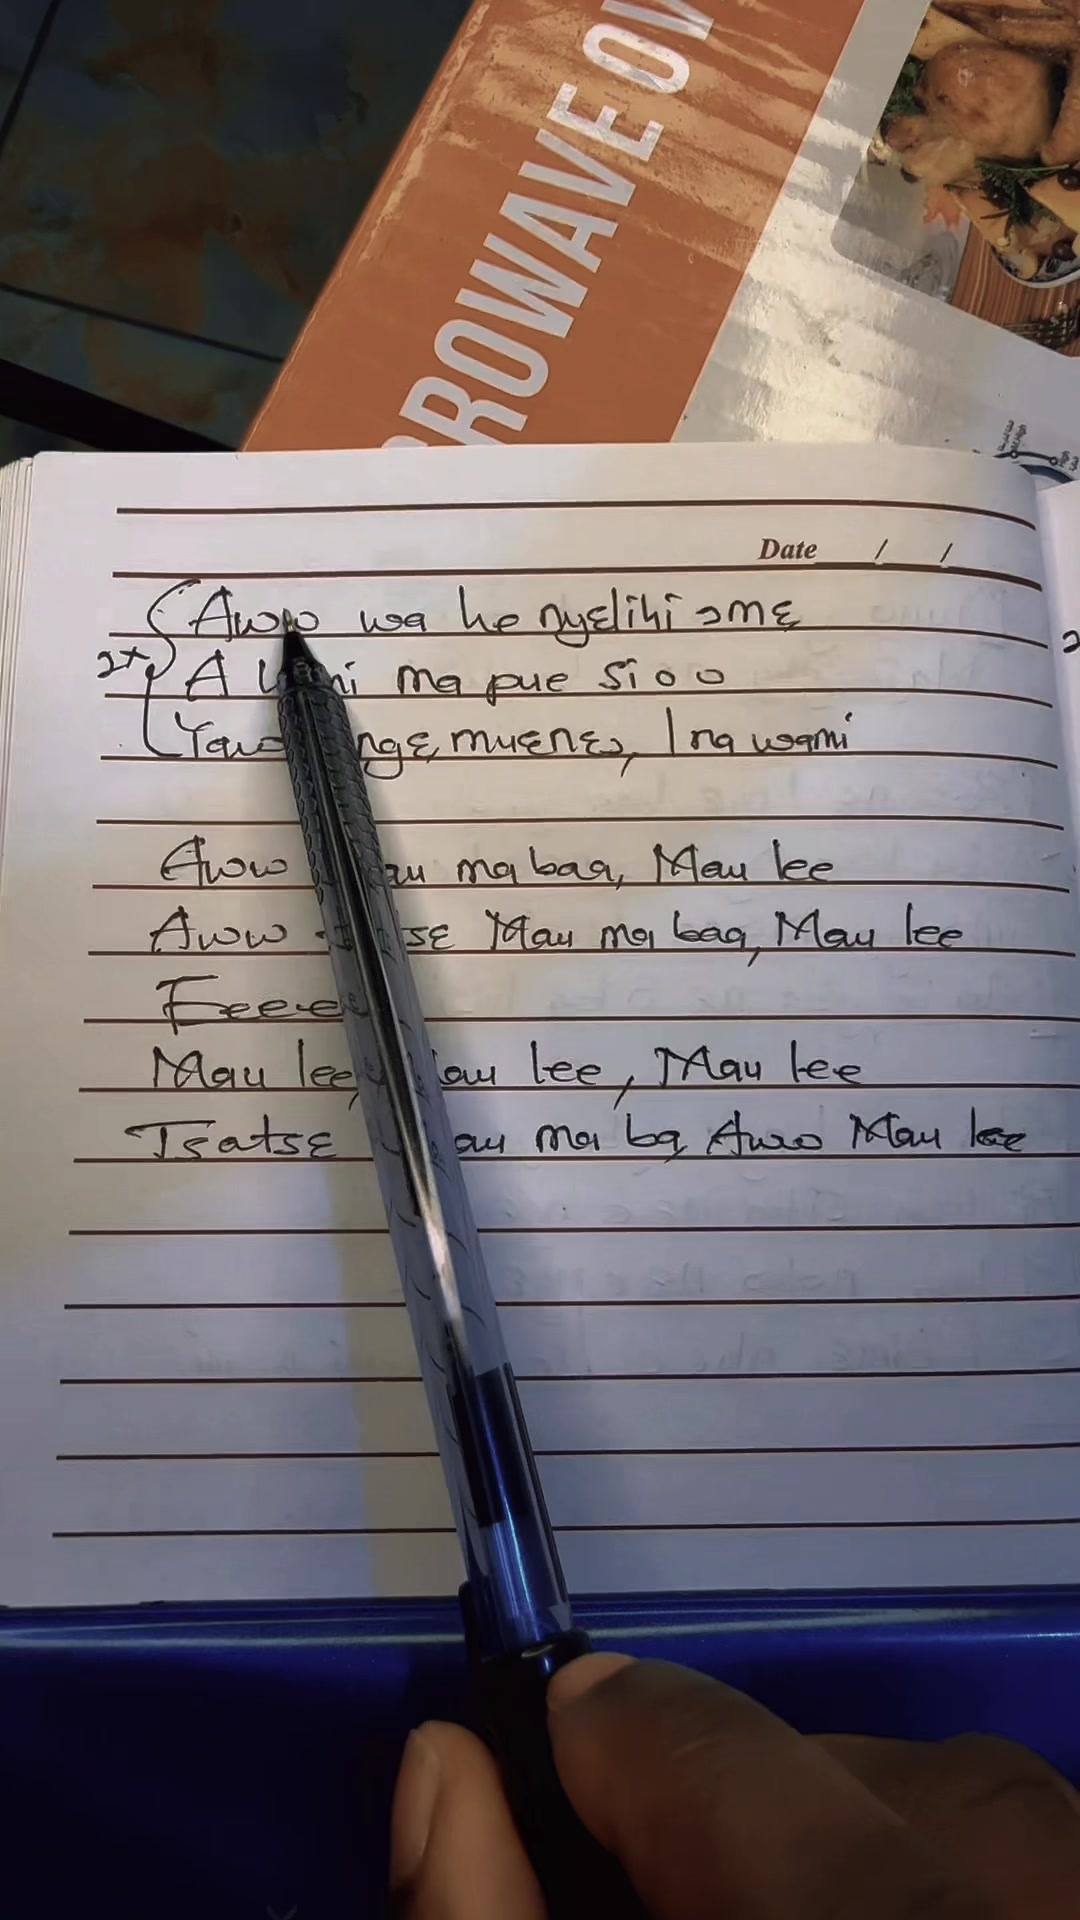 ROWAVE OV
Date / /
Awo wa he nyɛlihi ɔmɛ
2x
A ma pue si o o
muɛnɛɔ, I na wami
Aww ma baa, Mau lee
Aww Mau ma baa, Mau lee
Eeeee
Mau lee, lee, Mau lee
Tsatsɛ ma ba Awo Mau lee